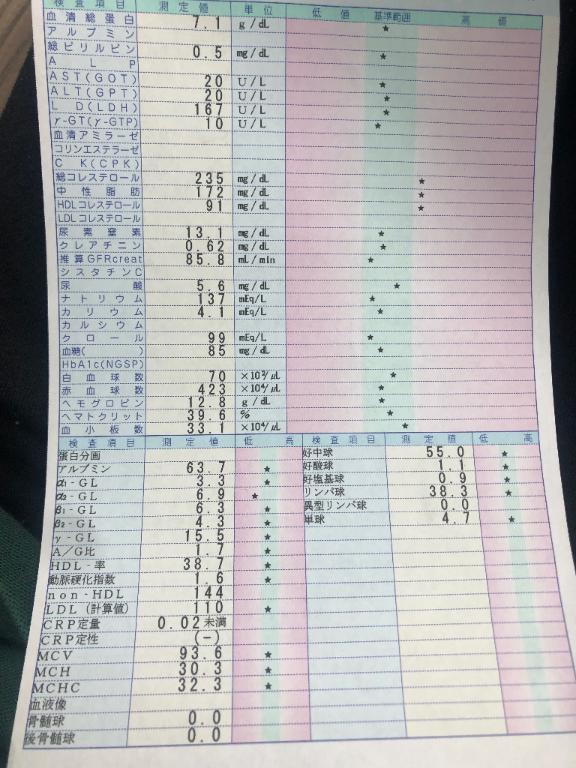 検査項目 測定値 単位 低値 基準範囲 高値
血清総蛋白 7.1 g/dL ★
アルブミン
総ビリルビン 0.5 mg/dL ★
ALP
AST(GOT) 20 U/L ★
ALT(GPT) 20 U/L ★
LD(LDH) 167 U/L ★
γ-GT(γ-GTP) 10 U/L ★
血清アミラーゼ
コリンエステラーゼ
CK(CPK)
総コレステロール 235 mg/dL ★
中性脂肪 172 mg/dL ★
HDLコレステロール 91 mg/dL ★
LDLコレステロール
尿素窒素 13.1 mg/dL ★
クレアチニン 0.62 mg/dL ★
推算GFRcreat 85.8 mL/min ★
シスタチンC
尿酸 5.6 mg/dL ★
ナトリウム 137 mEq/L ★
カリウム 4.1 mEq/L ★
カルシウム
クロール 99 mEq/L ★
血糖( ) 85 mg/dL ★
HbA1c(NGSP)
白血球数 70 ×10²/μL ★
赤血球数 423 ×10⁴/μL ★
ヘモグロビン 12.8 g/dL ★
ヘマトクリット 39.6 % ★
血小板数 33.1 ×10⁴/μL ★
検査項目 測定値 低 高 検査項目 測定値 低 高
蛋白分画 好中球 55.0 ★
アルブミン 63.7 ★ 好酸球 1.1 ★
α1-GL 3.3 ★ 好塩基球 0.9 ★
α2-GL 6.9 ★ リンパ球 38.3 ★
β1-GL 6.3 ★ 異型リンパ球 0.0
β2-GL 4.3 ★ 単球 4.7 ★
γ-GL 15.5 ★
A/G比 1.7 ★
HDL-率 38.7 ★
動脈硬化指数 1.6 ★
non-HDL 144
LDL(計算値) 110 ★
CRP定量 0.02未満
CRP定性 (-)
MCV 93.6 ★
MCH 30.3 ★
MCHC 32.3 ★
血液像
骨髄球 0.0
後骨髄球 0.0